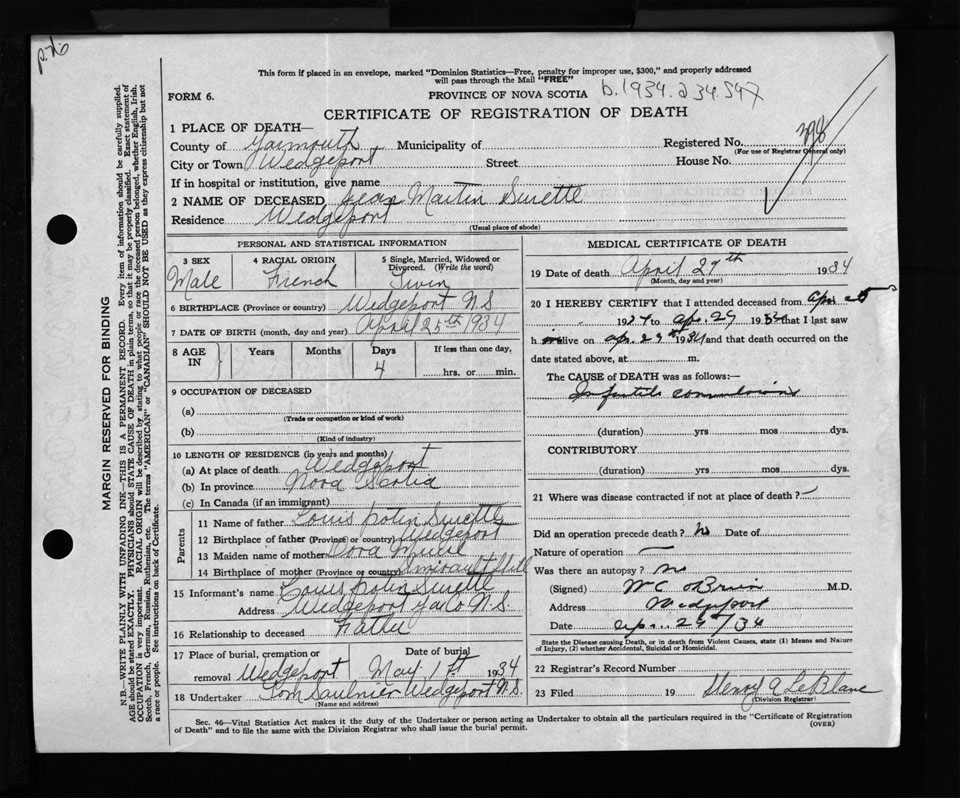 This form if placed in an envelope, marked "Dominion Statistics—Free, penalty for improper use, $300," and properly addressed
will pass through the Mail "FREE"
FORM 6. PROVINCE OF NOVA SCOTIA b.1934.234.547
CERTIFICATE OF REGISTRATION OF DEATH
1 PLACE OF DEATH—
County of Yarmouth Municipality of Registered No. 398
(For use of Registrar General only)
City or Town Wedgeport Street House No.
If in hospital or institution, give name
2 NAME OF DECEASED Jean Martin Surette
Residence Wedgeport
(Usual place of abode)
PERSONAL AND STATISTICAL INFORMATION
3 SEX 4 RACIAL ORIGIN 5 Single, Married, Widowed or Divorced. (Write the word)
Male French Twin
6 BIRTHPLACE (Province or country) Wedgeport N.S
7 DATE OF BIRTH (month, day and year) April 25th 1934
8 AGE IN Years Months Days If less than one day,
4 hrs. or min.
9 OCCUPATION OF DECEASED
(a)
(Trade or occupation or kind of work)
(b)
(Kind of industry)
10 LENGTH OF RESIDENCE (in years and months)
(a) At place of death Wedgeport
(b) In province Nova Scotia
(c) In Canada (if an immigrant)
Parents
11 Name of father Louis Surette
12 Birthplace of father (Province or country) Wedgeport
13 Maiden name of mother Cora
14 Birthplace of mother (Province or country) Amirault Hill
15 Informant's name Louis Surette
Address Wedgeport Yar Co N.S.
16 Relationship to deceased Father
17 Place of burial, cremation or removal Wedgeport Date of burial May 1st 1934
18 Undertaker Tom Saulnier Wedgeport N.S.
(Name and address)
MEDICAL CERTIFICATE OF DEATH
19 Date of death April 29th 1934
(Month, day and year)
20 I HEREBY CERTIFY that I attended deceased from Apr 25
1934 to apr. 29 1934 that I last saw
h im alive on apr. 29th 1934 and that death occurred on the
date stated above, at m.
The CAUSE of DEATH was as follows:—
Infantile convulsions
(duration) yrs mos dys.
CONTRIBUTORY
(duration) yrs mos dys.
21 Where was disease contracted if not at place of death? —
Did an operation precede death? No Date of
Nature of operation —
Was there an autopsy? no
(Signed) W C O'Brien M.D.
Address Wedgeport
Date apr. 29/34
State the Disease causing Death, or in death from Violent Causes, state (1) Means and Nature
of Injury, (2) whether Accidental, Suicidal or Homicidal.
22 Registrar's Record Number
23 Filed 19 Henry A LeBlanc
(Division Registrar)
Sec. 46—Vital Statistics Act makes it the duty of the Undertaker or person acting as Undertaker to obtain all the particulars required in the "Certificate of Registration
of Death" and to file the same with the Division Registrar who shall issue the burial permit. (OVER)
MARGIN RESERVED FOR BINDING
N.B.—WRITE PLAINLY WITH UNFADING INK—THIS IS A PERMANENT RECORD. Every item of information should be carefully supplied.
AGE should be stated EXACTLY. PHYSICIANS should STATE CAUSE OF DEATH in plain terms, so that it may be properly classified. Exact statement of
OCCUPATION is very important. RACIAL ORIGIN will be described by stating to what people or race the deceased person belonged, whether English, Irish,
Scotch, French, German, Russian, Ruthenian, etc. The terms "AMERICAN" or "CANADIAN" SHOULD NOT BE USED as they express citizenship but not
a race or people. See instructions on back of Certificate.